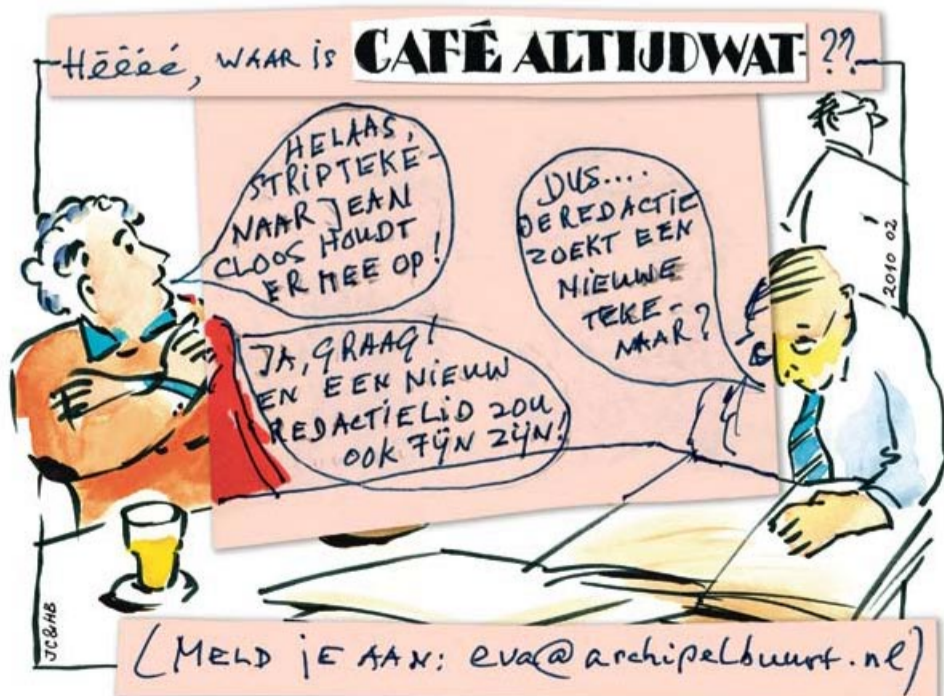 Hêêéé, WAAR IS CAFÉ ALTIJDWAT ??
HELAAS,
STRIPTEKE-
NAAR JEAN
CLOOS HOUDT
ER MEE OP!
DUS....
DE REDACTIE
ZOEKT EEN
NIEUWE
TEKE-
NAAR?
JA, GRAAG!
EN EEN NIEUW
REDACTIELID ZOU
OOK FIJN ZIJN!
2010 02
JC&HB
(MELD JE AAN: eva@archipelbuurt.nl)